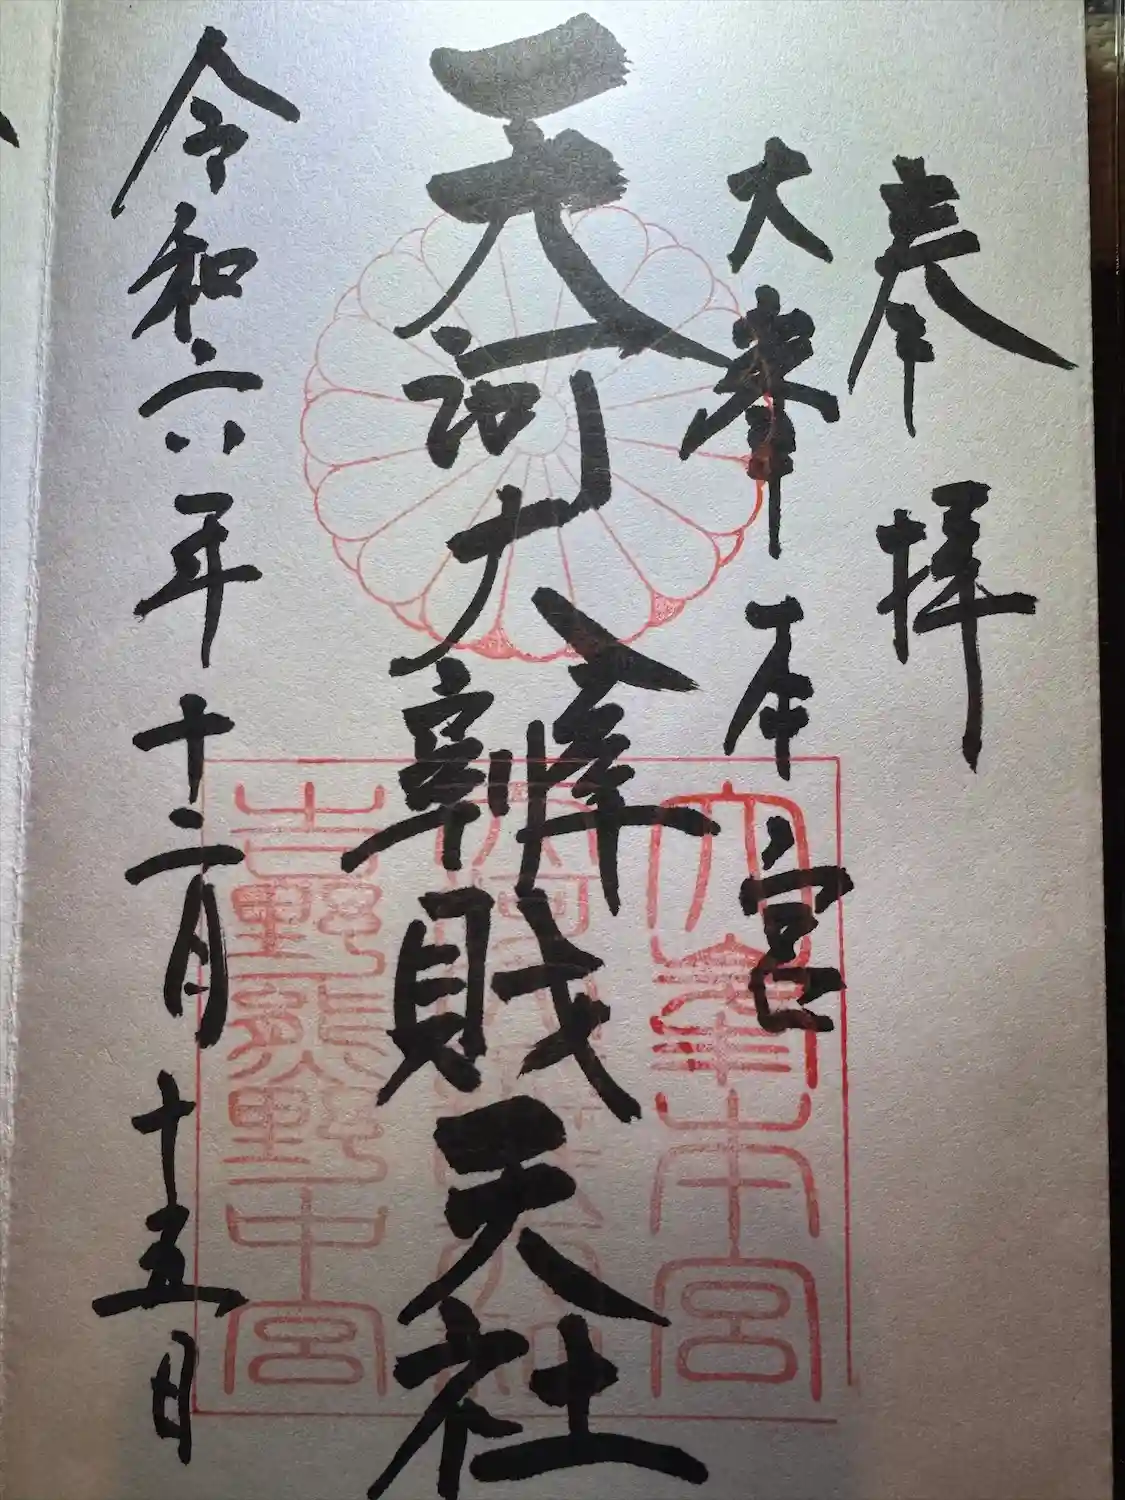 奉拝
大峯本宮
天河大辨財天社
令和六年十二月十五日
大峯本宮
天河大辨財天社
吉野熊野中宮